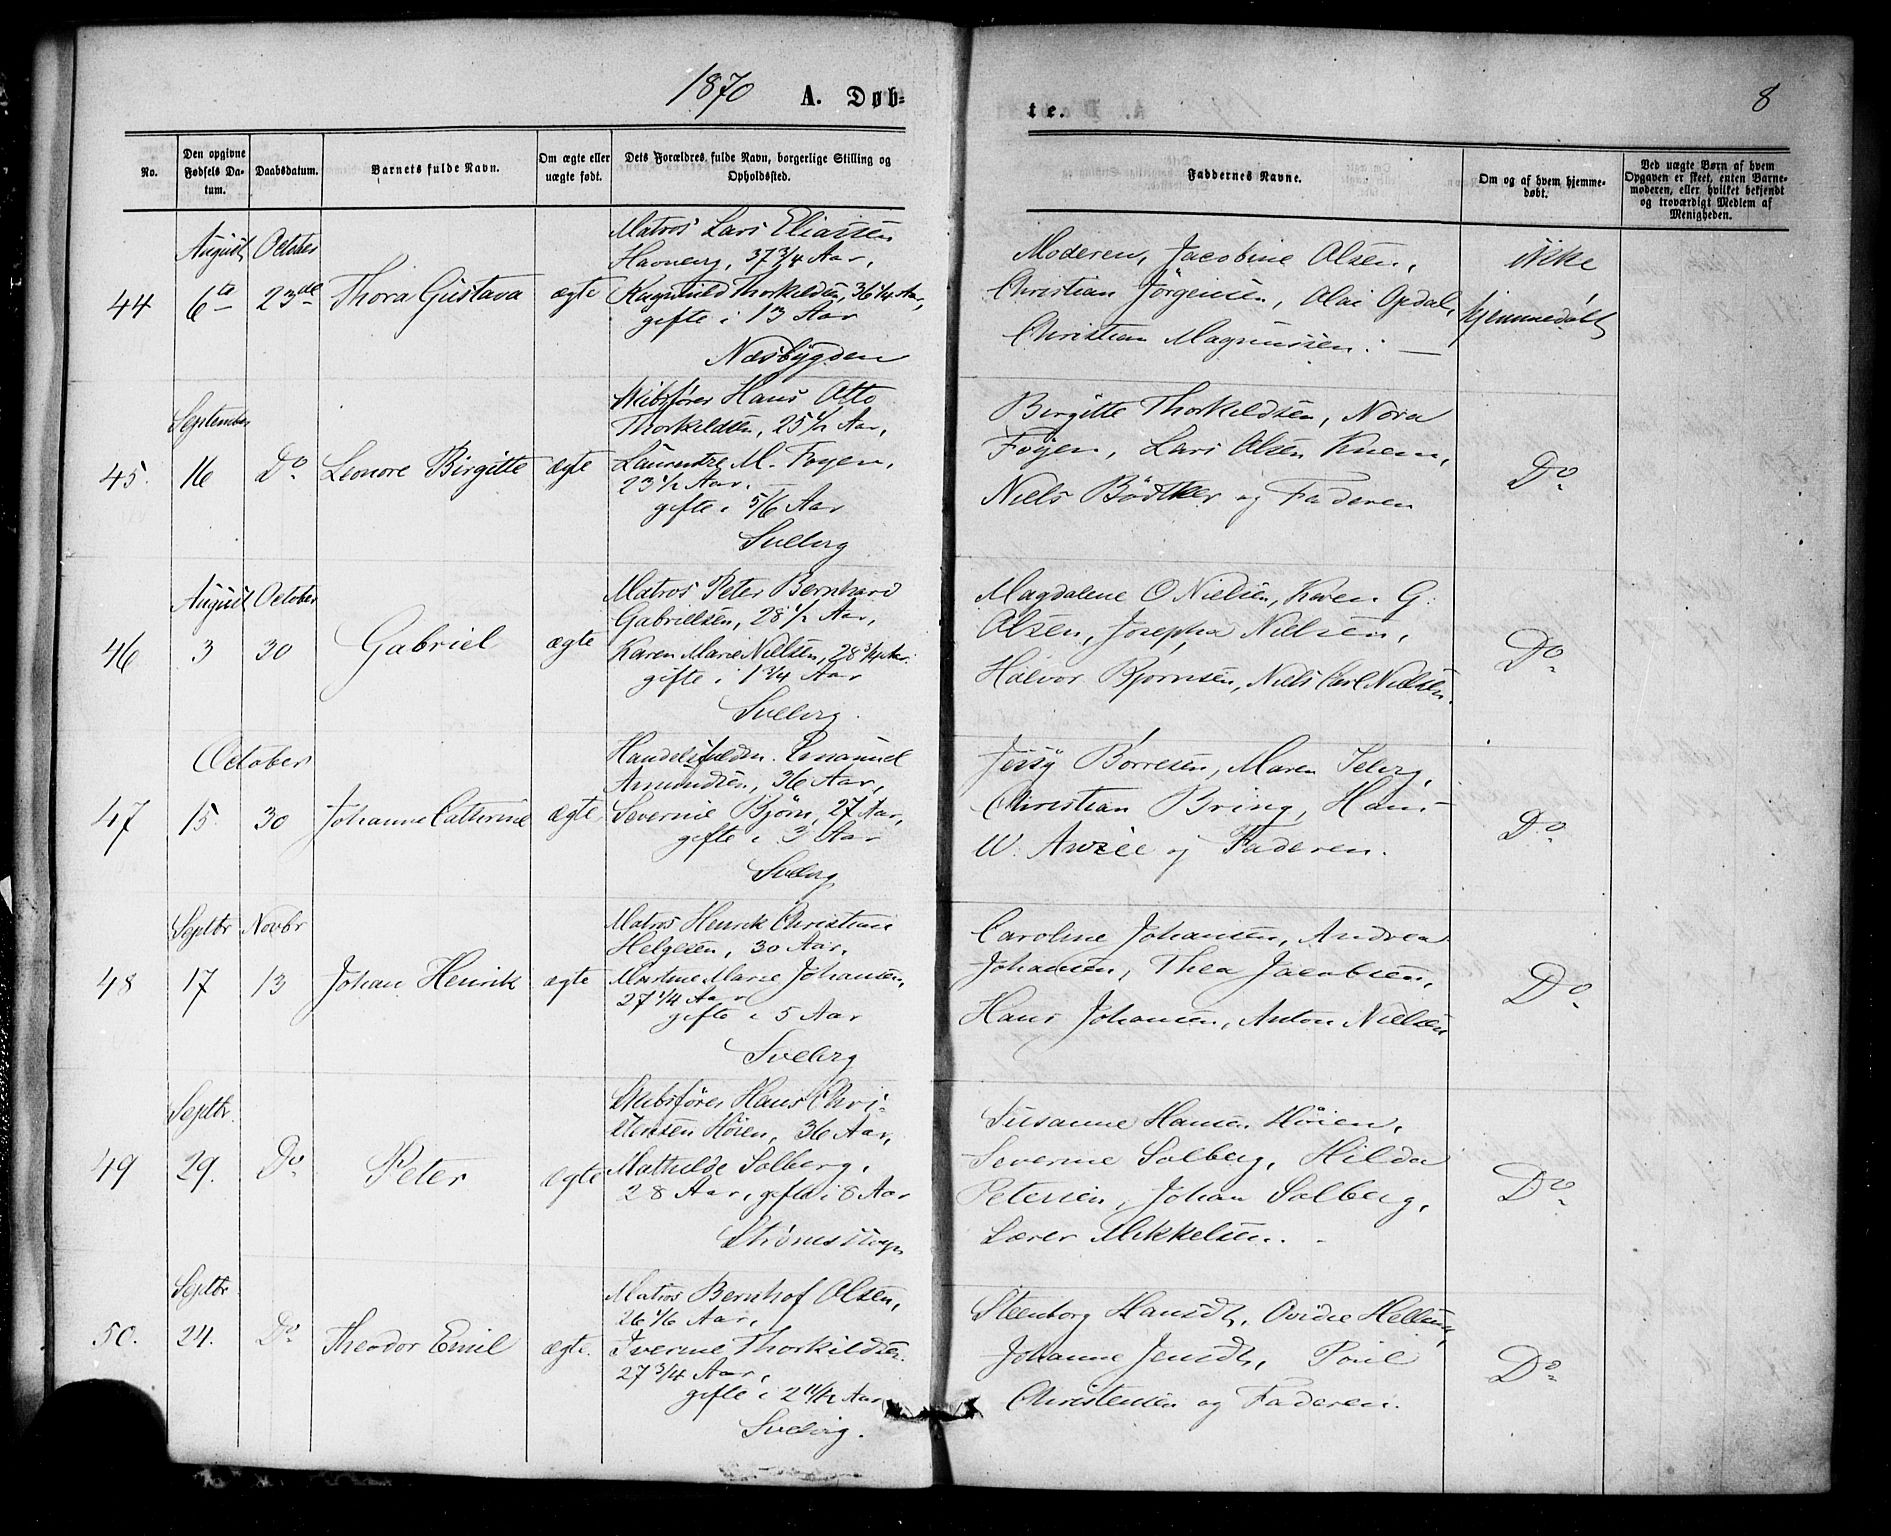 1870 A. Døb-
te. 8
No.
Den opgivne
Fødsels Da-
tum.
Daabsdatum.
Barnets fulde Navn.
Om ægte eller
uægte født.
Dets Forældres fulde Navn, borgerlige Stilling og
Opholdssted.
Faddernes Navne.
Om og af hvem hjemme-
døbt.
Ved uægte Børn af hvem
Opgaven er skeet, enten Barne-
moderen, eller hvilket bekjendt
og troværdigt Medlem af
Menigheden.
44
August
6te
October
23de
Thora Gustava
ægte
Matros Lars Eliassen
Havnevig, 37 3/4 Aar,
Ragnhild Thorkildsen, 36 1/4 Aar,
gifte i 13 Aar
Næsbygden
Moderen, Jacobine Olsen,
Christian Jörgensen, Olai Opdal,
Christian Magnussen. —
ikke
hjemmedøbt
45.
September
16
Do
Leonore Birgitte
ægte
Skibsfører Hans Otto
Thorkildsen, 25 1/2 Aar,
M. Foyen,
23 1/2 Aar.
gifte i 5/6 Aar
Svelvig
Birgitte Thorkildsen, Nora
Foyen, Lars Olsen Knem,
Niels Bödtker og Faderen
Do
46
August
3
October
30
Gabriel
ægte
Matros Peter Bernhard
Gabrielsen, 28 1/2 Aar,
Karen Marie Nielsen, 28 3/4 Aar.
gifte i 1 3/4 Aar
Svelvig.
Magdalene O Nielsen, Karen G.
Olsen, Josepha Nielsen,
Halvor Bjornsen, Niels Carl Nielsen.
Do
47
October
15.
30
Johanne Cathrine
ægte
Emanuel
Amundsen, 36 Aar,
Severine Bjørn, 27 Aar,
gifte i 3 Aar
Svelvig
Jessy Börresen, Maren
Christian Bring, Hans
W. og Faderen.
Do
48
Septbr
17
Novbr
13
Johan Henrik
ægte
Matros Henrik Christian
Helgesen, 30 Aar,
Martine Marie Johansen,
27 1/4 Aar
gifte i 5 Aar
Svelvig
Caroline Johansen, Andrea
Johansen, Thea Jacobsen,
Hans Johansen, Anton Nielsen
Do
49
Septbr.
29.
Do
Peter
ægte
Skibsfører Hans Chri-
stensen Höien, 36 Aar,
Mathilde Solberg,
28 Aar, gifte i 8 Aar
Susanne Hansen Höien,
Severine Solberg, Hilda
Petersen, Johan Solberg,
Lærer Mikkelsen.
Do
50.
Septbr
24.
Do
Theodor Emil
ægte.
Matros Bernhof Olsen,
26 1/6 Aar,
Iverine Thorkildsen.
27 3/4 Aar,
gifte i 2 11/12 Aar
Svelvig.
Steenborg Hansdt, Ovidie
Johanne Jensdt, Poul
Christensen og Faderen.
Do